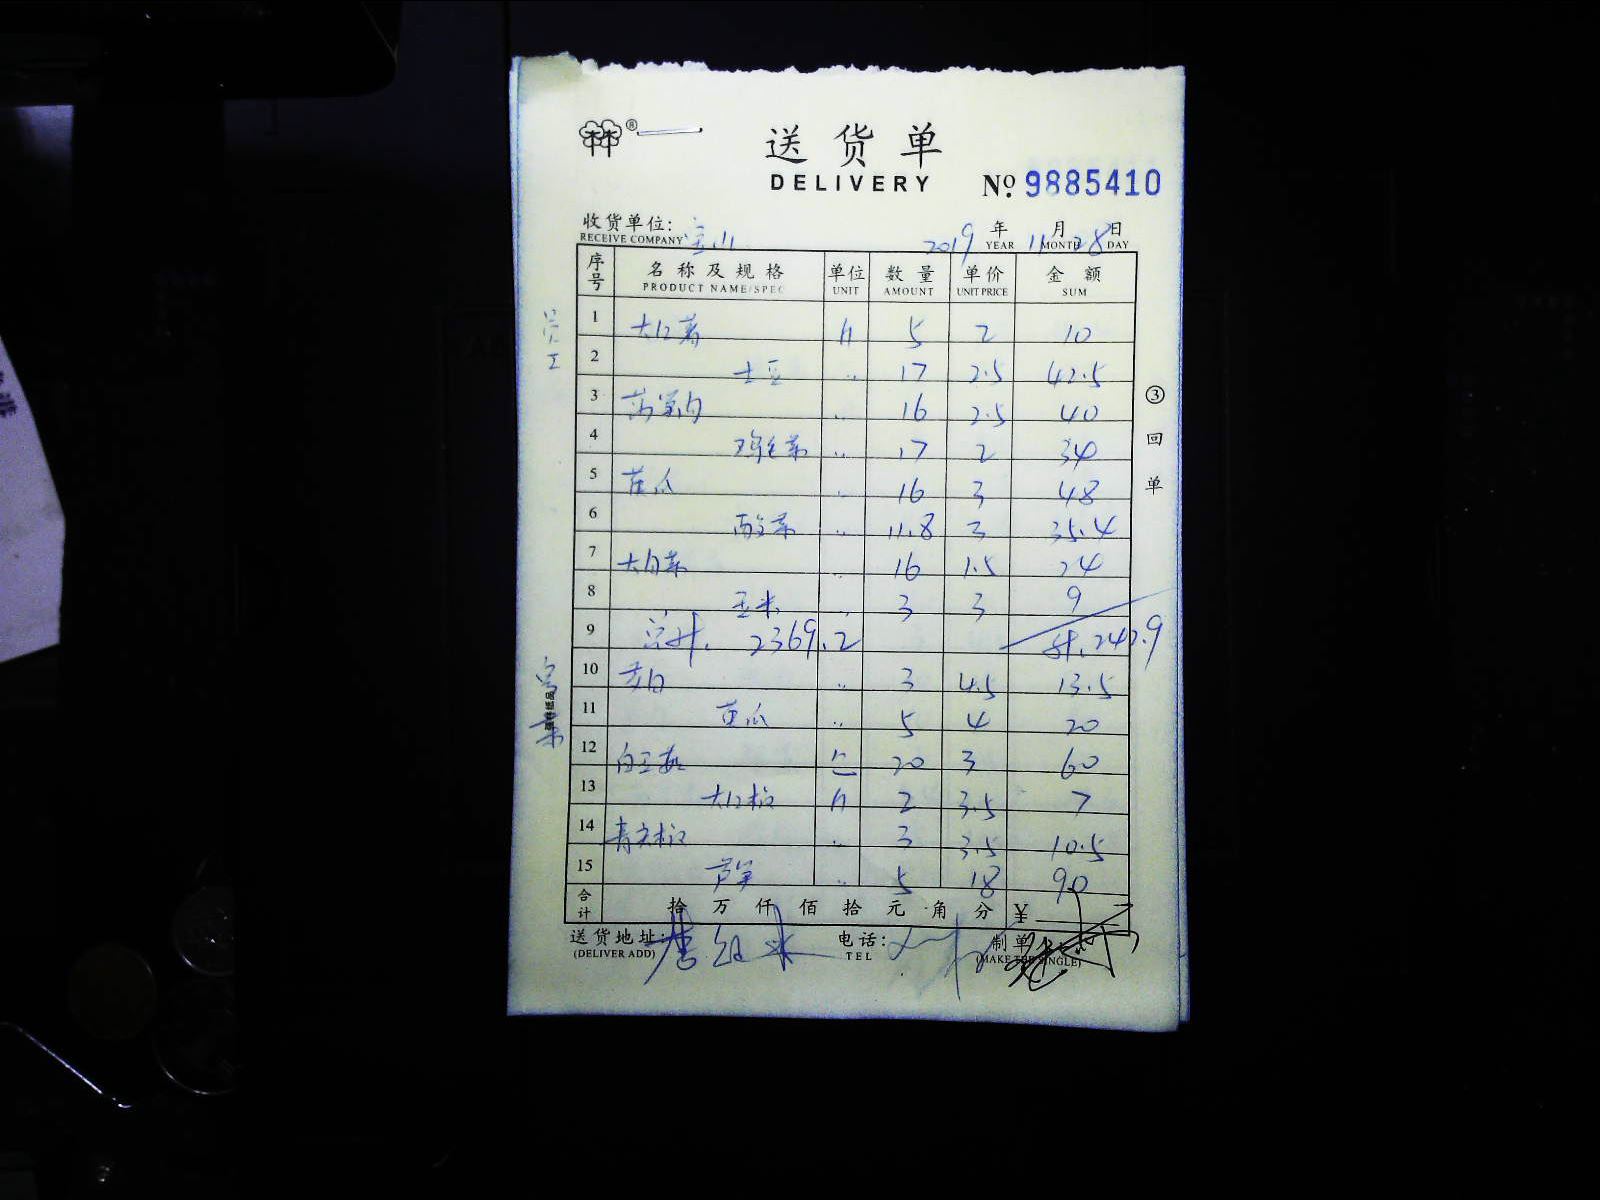 送货单
DELIVERY
№ 9885410
收货单位: 宝山 2019 年 11 月 28 日
RECEIVE COMPANY YEAR MONTH DAY
序号 名称及规格 单位 数量 单价 金额
PRODUCT NAME/SPEC UNIT AMOUNT UNIT PRICE SUM
员工
1 5 2 10
2 土豆 〃 17 2.5 42.5
3 〃 16 2.5 40
4 鸡毛菜 〃 17 2 34
5 黄瓜 〃 16 3 48
6 酸菜 〃 11.8 3 35.4
7 大白菜 16 1.5 24
8 玉米 〃 3 3 9
9 总计. 2369.2 计.242.9
10 茭白 〃 3 4.5 13.5
11 黄瓜 〃 5 4 20
12 白玉菇 20 3 60
13 2 3.5 7
14 青尖椒 〃 3 3.5 10.5
15 芦笋 〃 5 18 90
合计 拾 万 仟 佰 拾 元 角 分 ¥
送货地址: 电话: 制单
(DELIVER ADD) TEL (MAKE THE SINGLE)
③回单